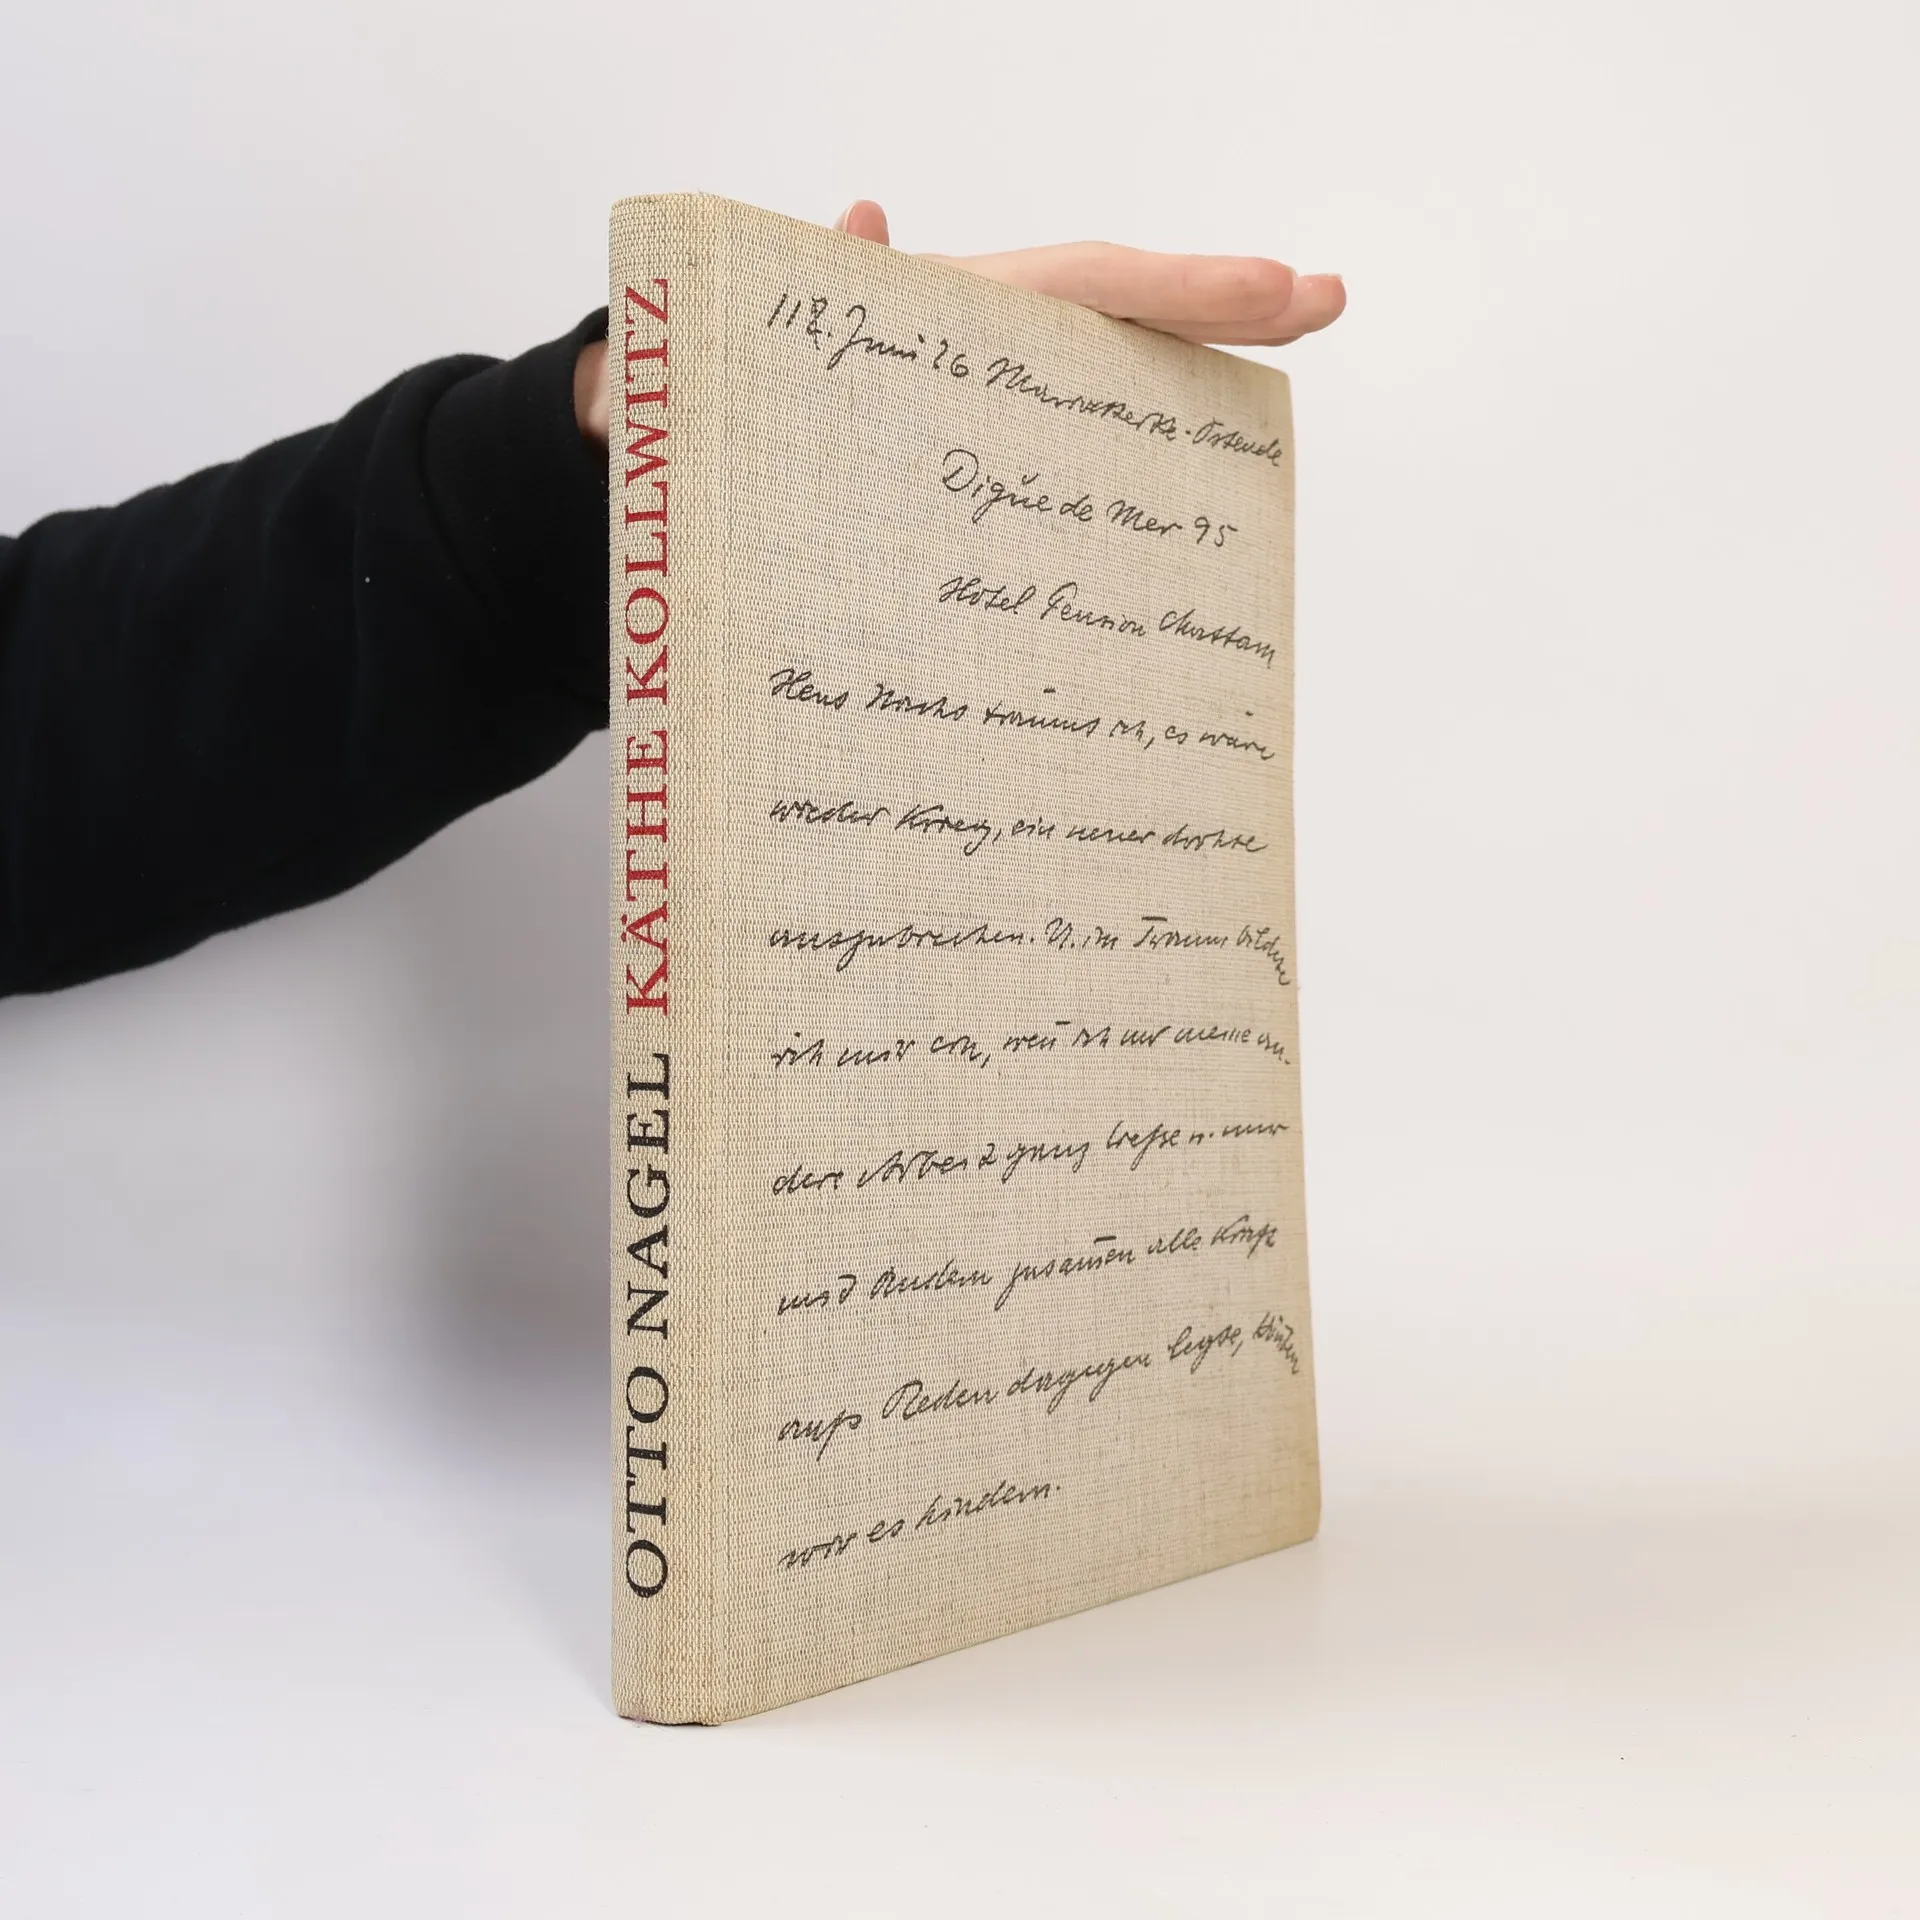 OTTO NAGEL KÄTHE KOLLWITZ
Juni 26 Mariakerke-Ostende
Digue de Mer 95
Hotel Pension
Heut Nacht träumt ich, es wäre
wieder Krieg, ein neuer drohte
auszubrechen. U. im Traum bildete
ich mir ein, wen̄ ich nur meine an-
dere Arbeit ganz ließe u. nur
mit Andern zusam̄en alle Kraft
aufs Reden dagegen legte, könten
wir es hindern.